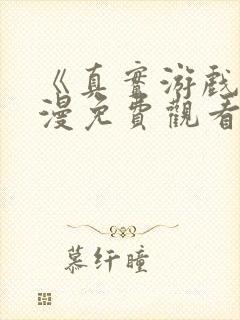 《真實游戲
漫免費觀看
慕纤瞳